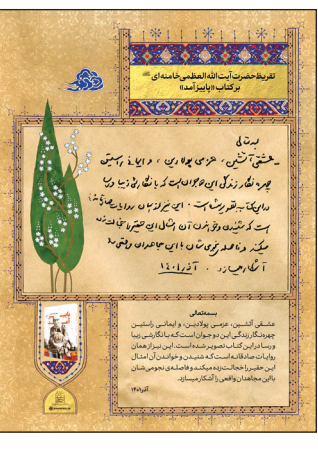 تقریظ حضرت آیت الله العظمی خامنه ای
بر کتاب «پاییز آمد»
بسمه تعالی
عشقی آتشین، عزمی پولادین، و ایمانی راستین
چهره نگار زندگی این دو جوان است که با نگارشی زیبا و رسا
در این کتاب تصویر شده است. این نیز از همان روایات صادقانه
است که شنیدن و خواندن آن امثال این حقیر را خجالت زده
میکند و فاصله ی نجومی شان با این مجاهدان واقعی را
آشکار میسازد. آذر ۱۴۰۱
بسمه تعالی
عشقی آتشین، عزمی پولادین، و ایمانی راستین
چهره نگار زندگی این دو جوان است که با نگارشی زیبا
و رسا در این کتاب تصویر شده است. این نیز از همان
روایات صادقانه است که شنیدن و خواندن آن امثال
این حقیر را خجالت زده میکند و فاصله ی نجومی شان
با این مجاهدان واقعی را آشکار میسازد.
آذر ۱۴۰۱